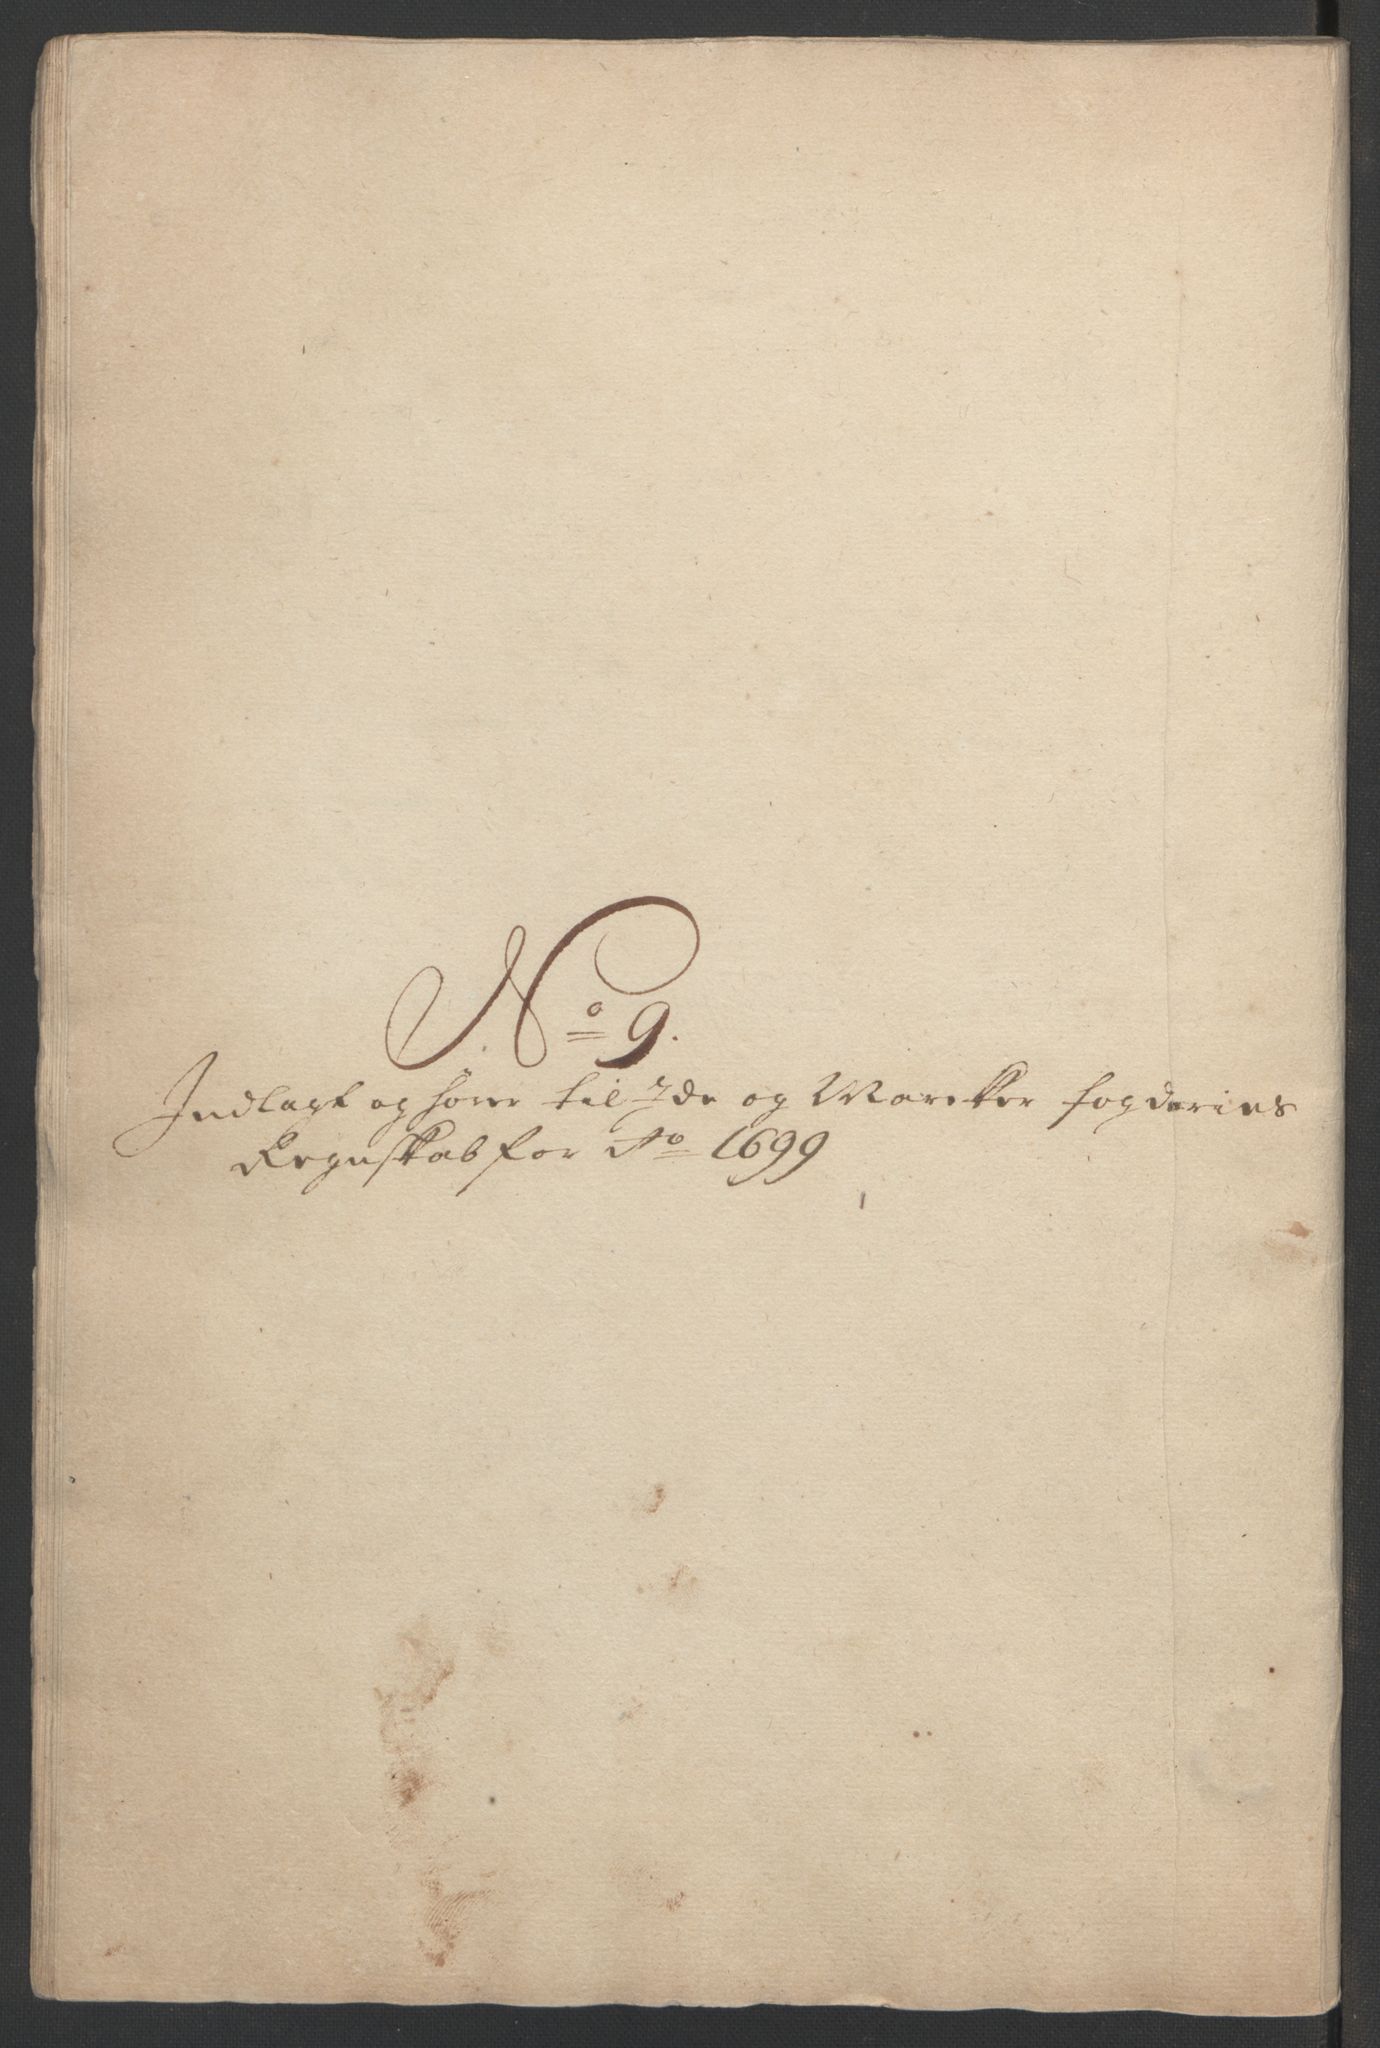 No 9.
Indlagt og hører til Ide og Marcker fogderies
Regnskab for Ao 1699